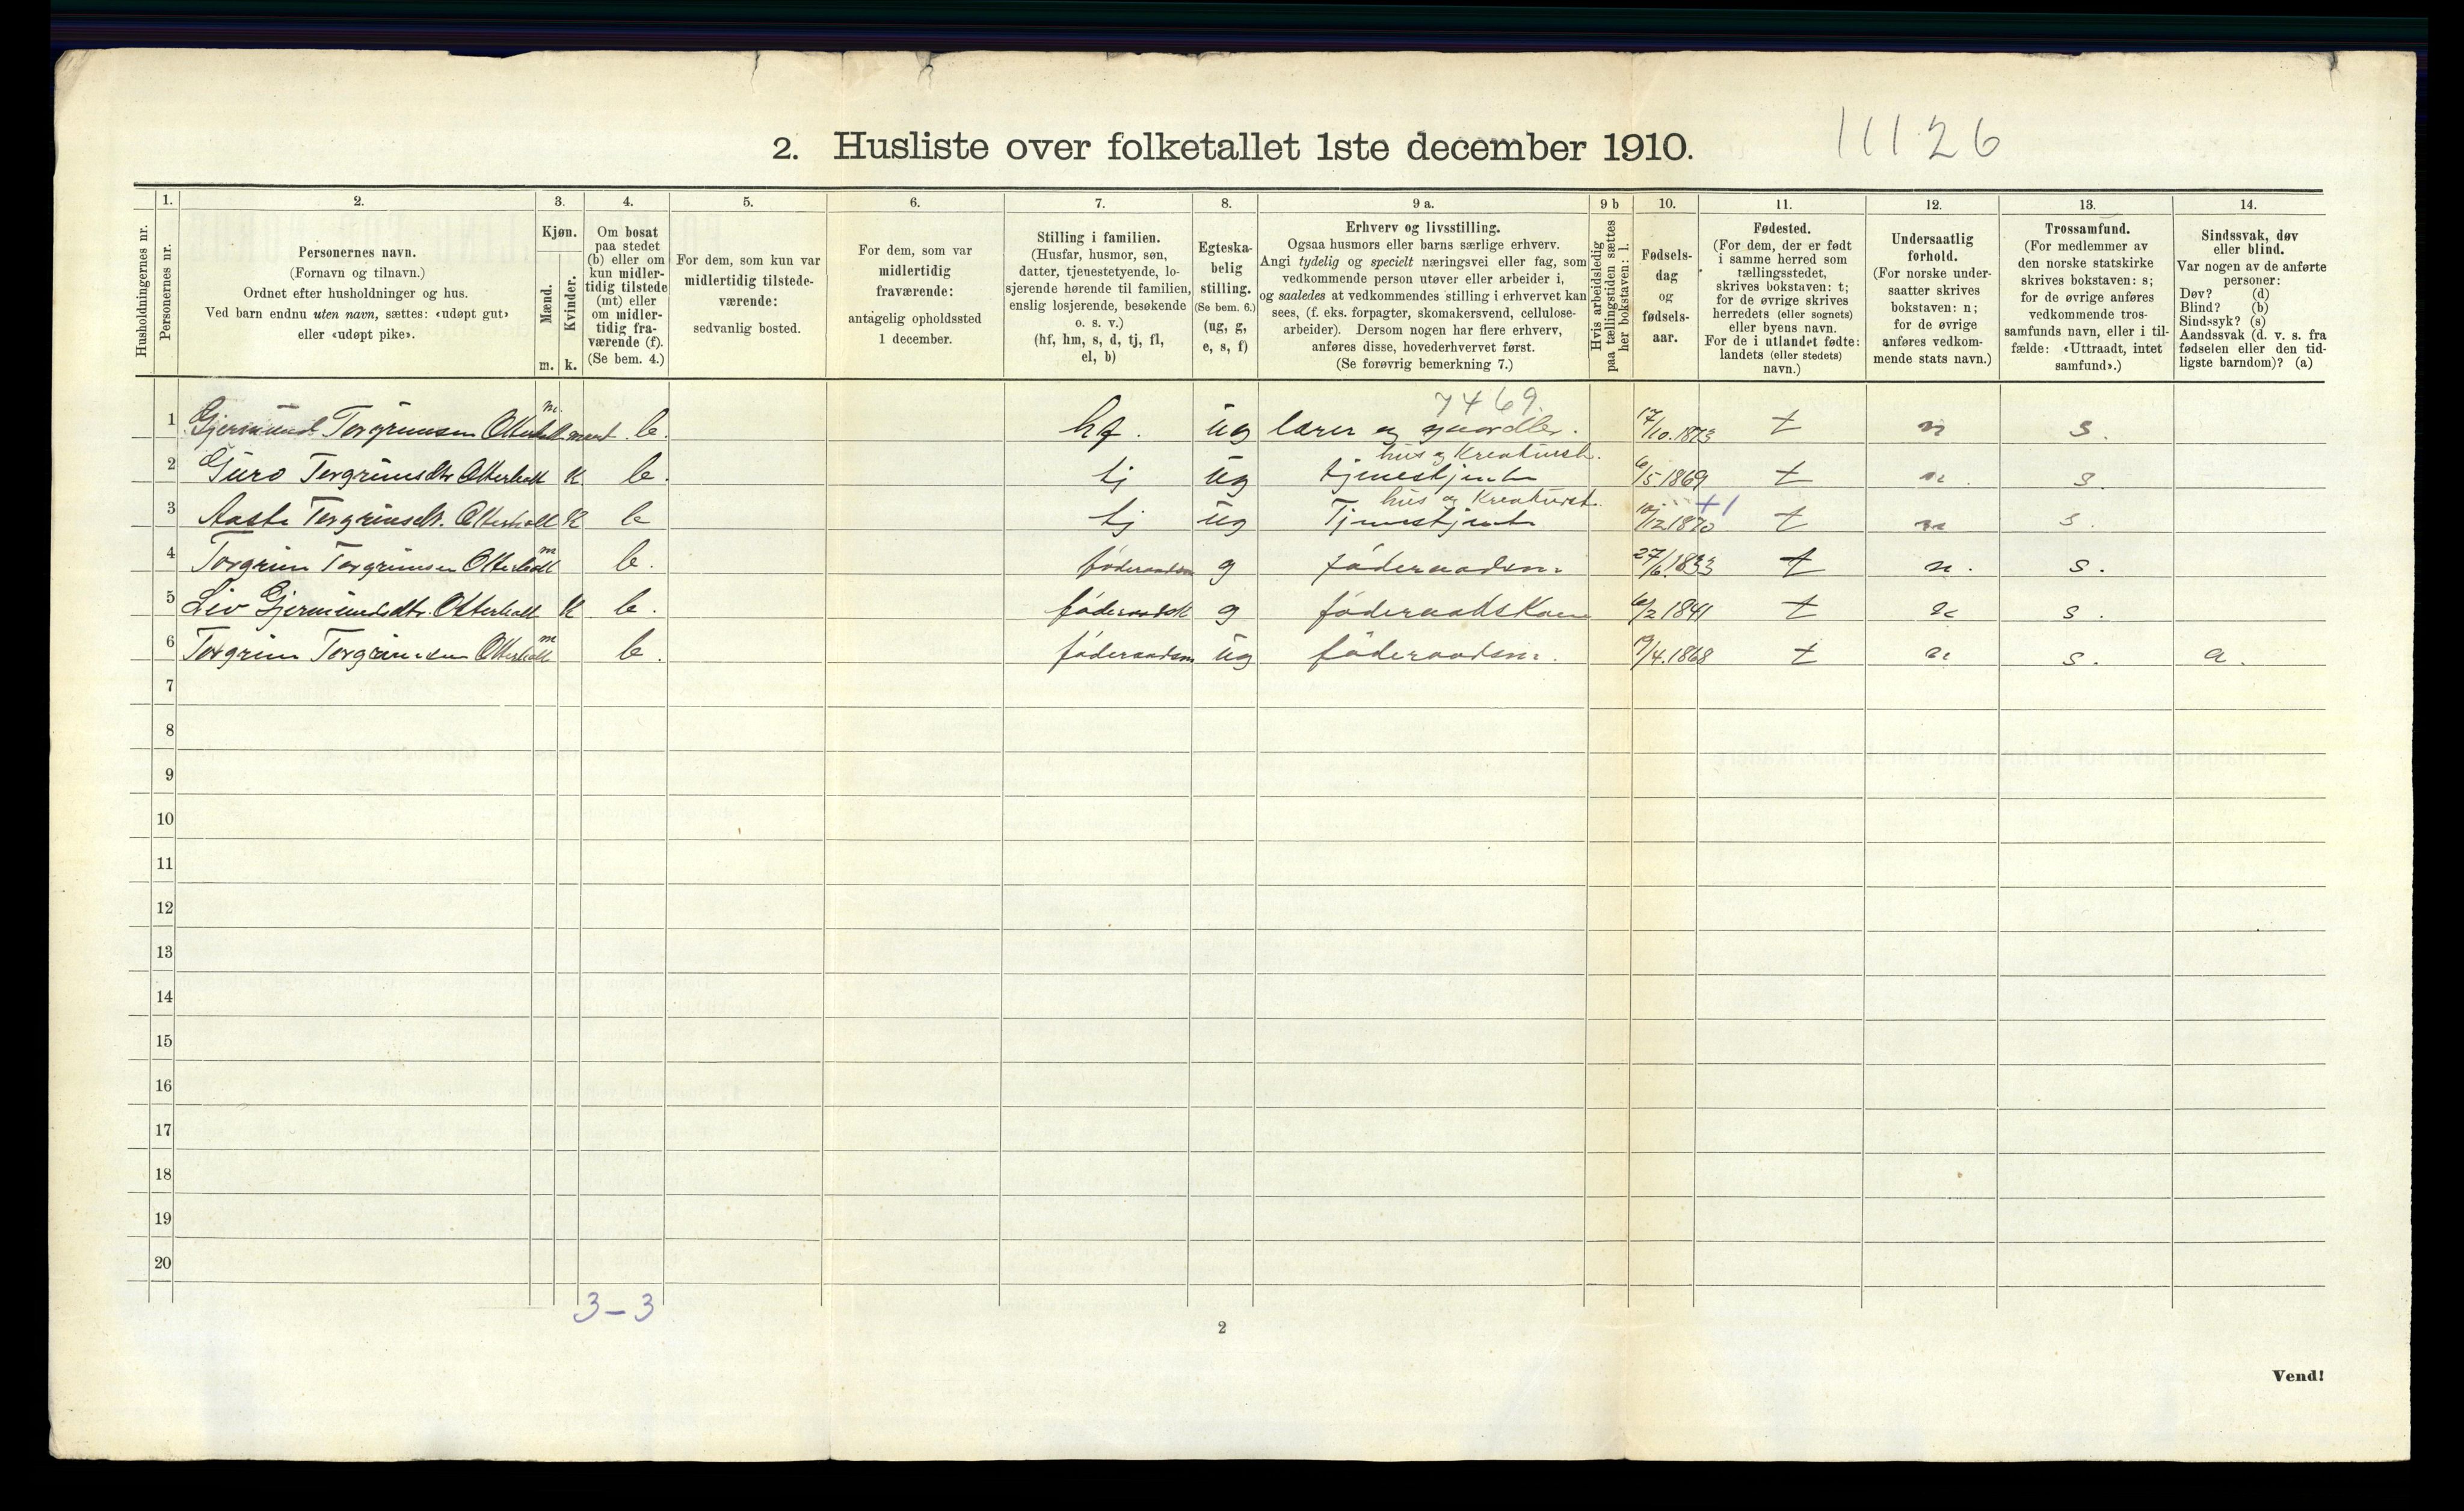 2. Husliste over folketallet 1ste december 1910.
11126
Husholdningernes nr.
1.
Personernes nr.
2.
Personernes navn.
(Fornavn og tilnavn.)
Ordnet efter husholdninger og hus.
Ved barn endnu uten navn, sættes: «udøpt gut»
eller «udøpt pike».
3.
Kjøn.
Mænd.
m.
Kvinder.
k.
4.
Om bosat
paa stedet
(b) eller om
kun midler-
tidig tilstede
(mt) eller
om midler-
tidig fra-
værende (f).
(Se bem. 4.)
5.
For dem, som kun var
midlertidig tilstede-
værende:
sedvanlig bosted.
6.
For dem, som var
midlertidig
fraværende:
antagelig opholdssted
1 december.
7.
Stilling i familien.
(Husfar, husmor, søn,
datter, tjenestetyende, lo-
sjerende hørende til familien,
enslig losjerende, besøkende
o. s. v.)
(hf, hm, s, d, tj, fl,
el, b)
8.
Egteska-
belig
stilling.
(Se bem. 6.)
(ug, g,
e, s, f)
9 a.
Erhverv og livsstilling.
Ogsaa husmors eller barns særlige erhverv.
Angi tydelig og specielt næringsvei eller fag, som
vedkommende person utøver eller arbeider i,
og saaledes at vedkommendes stilling i erhvervet kan
sees, (f. eks. forpagter, skomakersvend, cellulose-
arbeider). Dersom nogen har flere erhverv,
anføres disse, hovederhvervet først.
(Se forøvrig bemerkning 7.)
9 b
Hvis arbeidsledig
paa tællingstiden sættes
her bokstaven: l.
10.
Fødsels-
dag
og
fødsels-
aar.
11.
Fødested.
(For dem, der er født
i samme herred som
tællingsstedet,
skrives bokstaven: t;
for de øvrige skrives
herredets (eller sognets)
eller byens navn.
For de i utlandet fødte:
landets (eller stedets)
navn.)
12.
Undersaatlig
forhold.
(For norske under-
saatter skrives
bokstaven: n;
for de øvrige
anføres vedkom-
mende stats navn.)
13.
Trossamfund.
(For medlemmer av
den norske statskirke
skrives bokstaven: s;
for de øvrige anføres
vedkommende tros-
samfunds navn, eller i til-
fælde: «Uttraadt, intet
samfund».)
14.
Sindssvak, døv
eller blind.
Var nogen av de anførte
personer:
Døv? (d)
Blind? (b)
Sindssyk? (s)
Aandssvak (d. v. s. fra
fødselen eller den tid-
ligste barndom)? (a)
7469.
1 Gjermund Torgrimsen Otterholt m b. hf. ug lærer og 17/10.1873 t n s.
hus og Kreaturst.
2 Guro Torgrimsdtr Otterholt K b. tj ug tjenestjente 6/5 1869 t n. s.
hus og Kreaturst.
3 Aaste Torgrimsdt. Otterholt K b tj ug Tjenestjente 10/12 1870 +1 t n s.
4 Torgrim Torgrimsen Otterholt m b. føderaadsm g føderaadsm. 27/6.1833 t n. s.
5 Liv Gjermundsdtr. Otterholt K b. føderaadsk g føderaadskone 6/2 1841 t n s.
6 Torgrim Torgrimsen Otterholt m b. føderaadsm ug føderaadsm. 19/4.1868 t n s. a.
7
8
9
10
11
12
13
14
15
16
17
18
19
20
3-3
2
Vend!